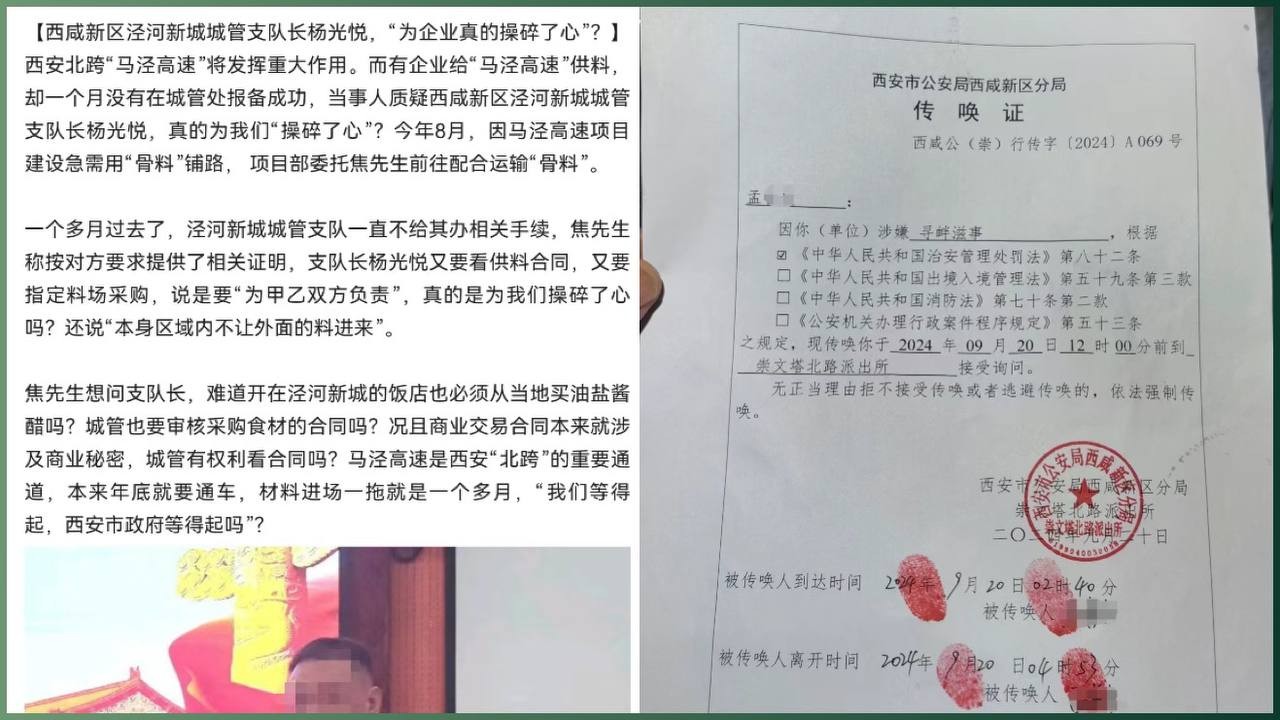 【西咸新区泾河新城城管支队长杨光悦，“为企业真的操碎了心”？】
西安北跨“马泾高速”将发挥重大作用。而有企业给“马泾高速”供料，
却一个月没有在城管处报备成功，当事人质疑西咸新区泾河新城城管
支队长杨光悦，真的为我们“操碎了心”？今年8月，因马泾高速项目
建设急需用“骨料”铺路， 项目部委托焦先生前往配合运输“骨料”。
一个多月过去了，泾河新城城管支队一直不给其办相关手续，焦先生
称按对方要求提供了相关证明，支队长杨光悦又要看供料合同，又要
指定料场采购，说是要“为甲乙双方负责”，真的是为我们操碎了心
吗？还说“本身区域内不让外面的料进来”。
焦先生想问支队长，难道开在泾河新城的饭店也必须从当地买油盐酱
醋吗？城管也要审核采购食材的合同吗？况且商业交易合同本来就涉
及商业秘密，城管有权利看合同吗？马泾高速是西安“北跨”的重要通
道，本来年底就要通车，材料进场一拖就是一个多月，“我们等得
起，西安市政府等得起吗”？
西安市公安局西咸新区分局
传唤证
西咸公（崇）行传字〔2024〕A 069 号
孟
：
因你（单位）涉嫌 寻衅滋事 ，根据
☑《中华人民共和国治安管理处罚法》第八十二条
□《中华人民共和国出境入境管理法》第五十九条第三款
□《中华人民共和国消防法》第七十条第二款
□《公安机关办理行政案件程序规定》第五十三条
之规定，现传唤你于 2024 年 09 月 20 日 12 时 00 分前到
崇文塔北路派出所 接受询问。
无正当理由拒不接受传唤或者逃避传唤的，依法强制传
唤。
西安市公安局西咸新区分局
崇文塔北路派出所
二〇二四年九月二十日
西安市公安局西咸新区分局
崇文塔北路派出所
被传唤人到达时间 2024年 9月 20日 02时 40分
被传唤人
被传唤人离开时间 2024年 9月20 日04时 53分
被传唤人